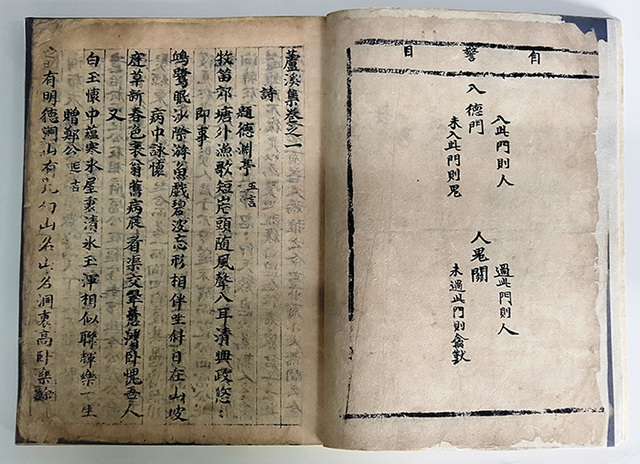 自警目
入此門則人
入德門
未入此門則鬼
過此門則人
人鬼關
未過此門則禽獸
蘆溪集卷之一
詩
題德淵亭 五言
牧笛郊塘外漁歌短岸頭随風聲入耳清興政悠〻
即事
鴎鷺眠沙際游魚戯碧波忘形相伴坐付日在山坡
病中詠懷
庭草新春色衾翁舊病展看渠交翠意潜卧愧吾人
又
白玉懷中蘊寒氷屋裏清氷玉渾相似聯輝樂一生
贈鄭公 延吉
有明德洞山有山名山名洞裏高卧樂餘